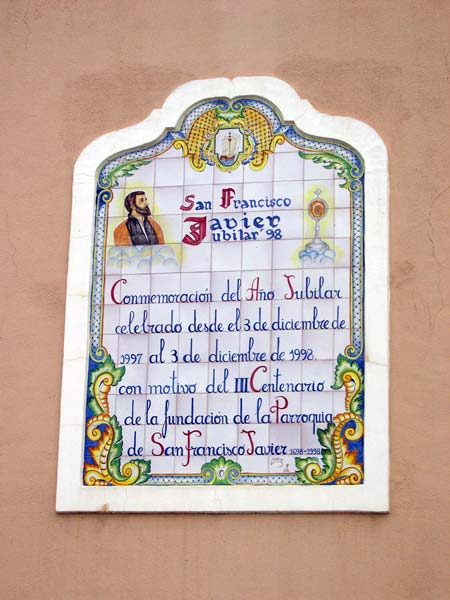 San Francisco
Javier
Jubilar '98
Conmemoración del Año Jubilar
celebrado desde el 3 de diciembre de
1997 al 3 de diciembre de 1998.
con motivo del III Centenario
de la fundación de la Parroquia
de San Francisco Javier 1698-1998